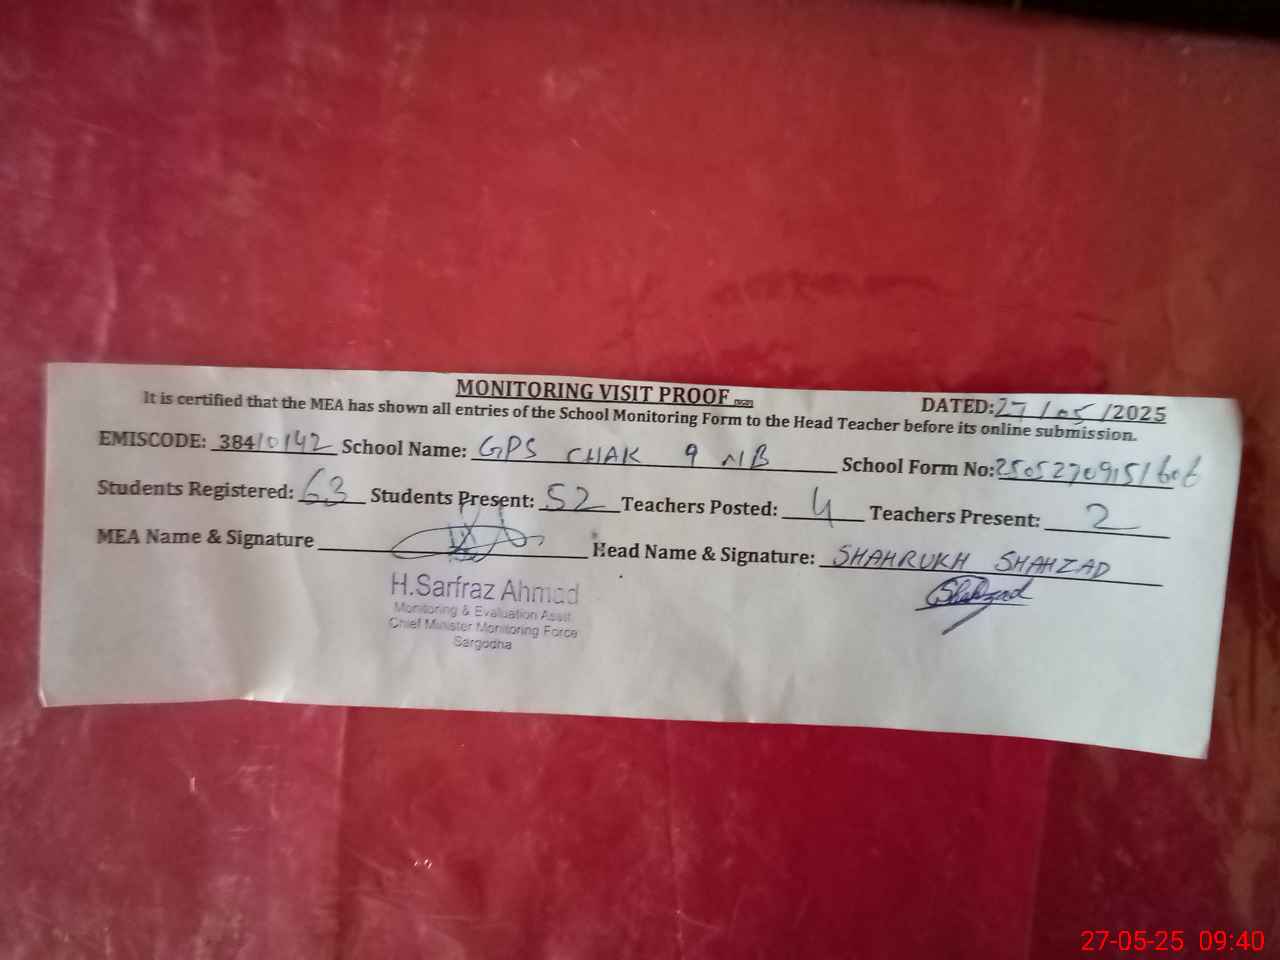 MONITORING VISIT PROOF
DATED: 27/05/2025
It is certified that the MEA has shown all entries of the School Monitoring Form to the Head Teacher before its online submission.
EMISCODE: 38410142 School Name: GPS CHAK 9 NB School Form No:
Students Registered: 63 Students Present: 52 Teachers Posted: 4 Teachers Present: 2
MEA Name & Signature Head Name & Signature: SHAHRUKH SHAHZAD
H.Sarfraz Ahmad
Monitoring & Evaluation Asstt.
Chief Minister Monitoring Force
Sargodha
Shahzad
27-05-25 09:40